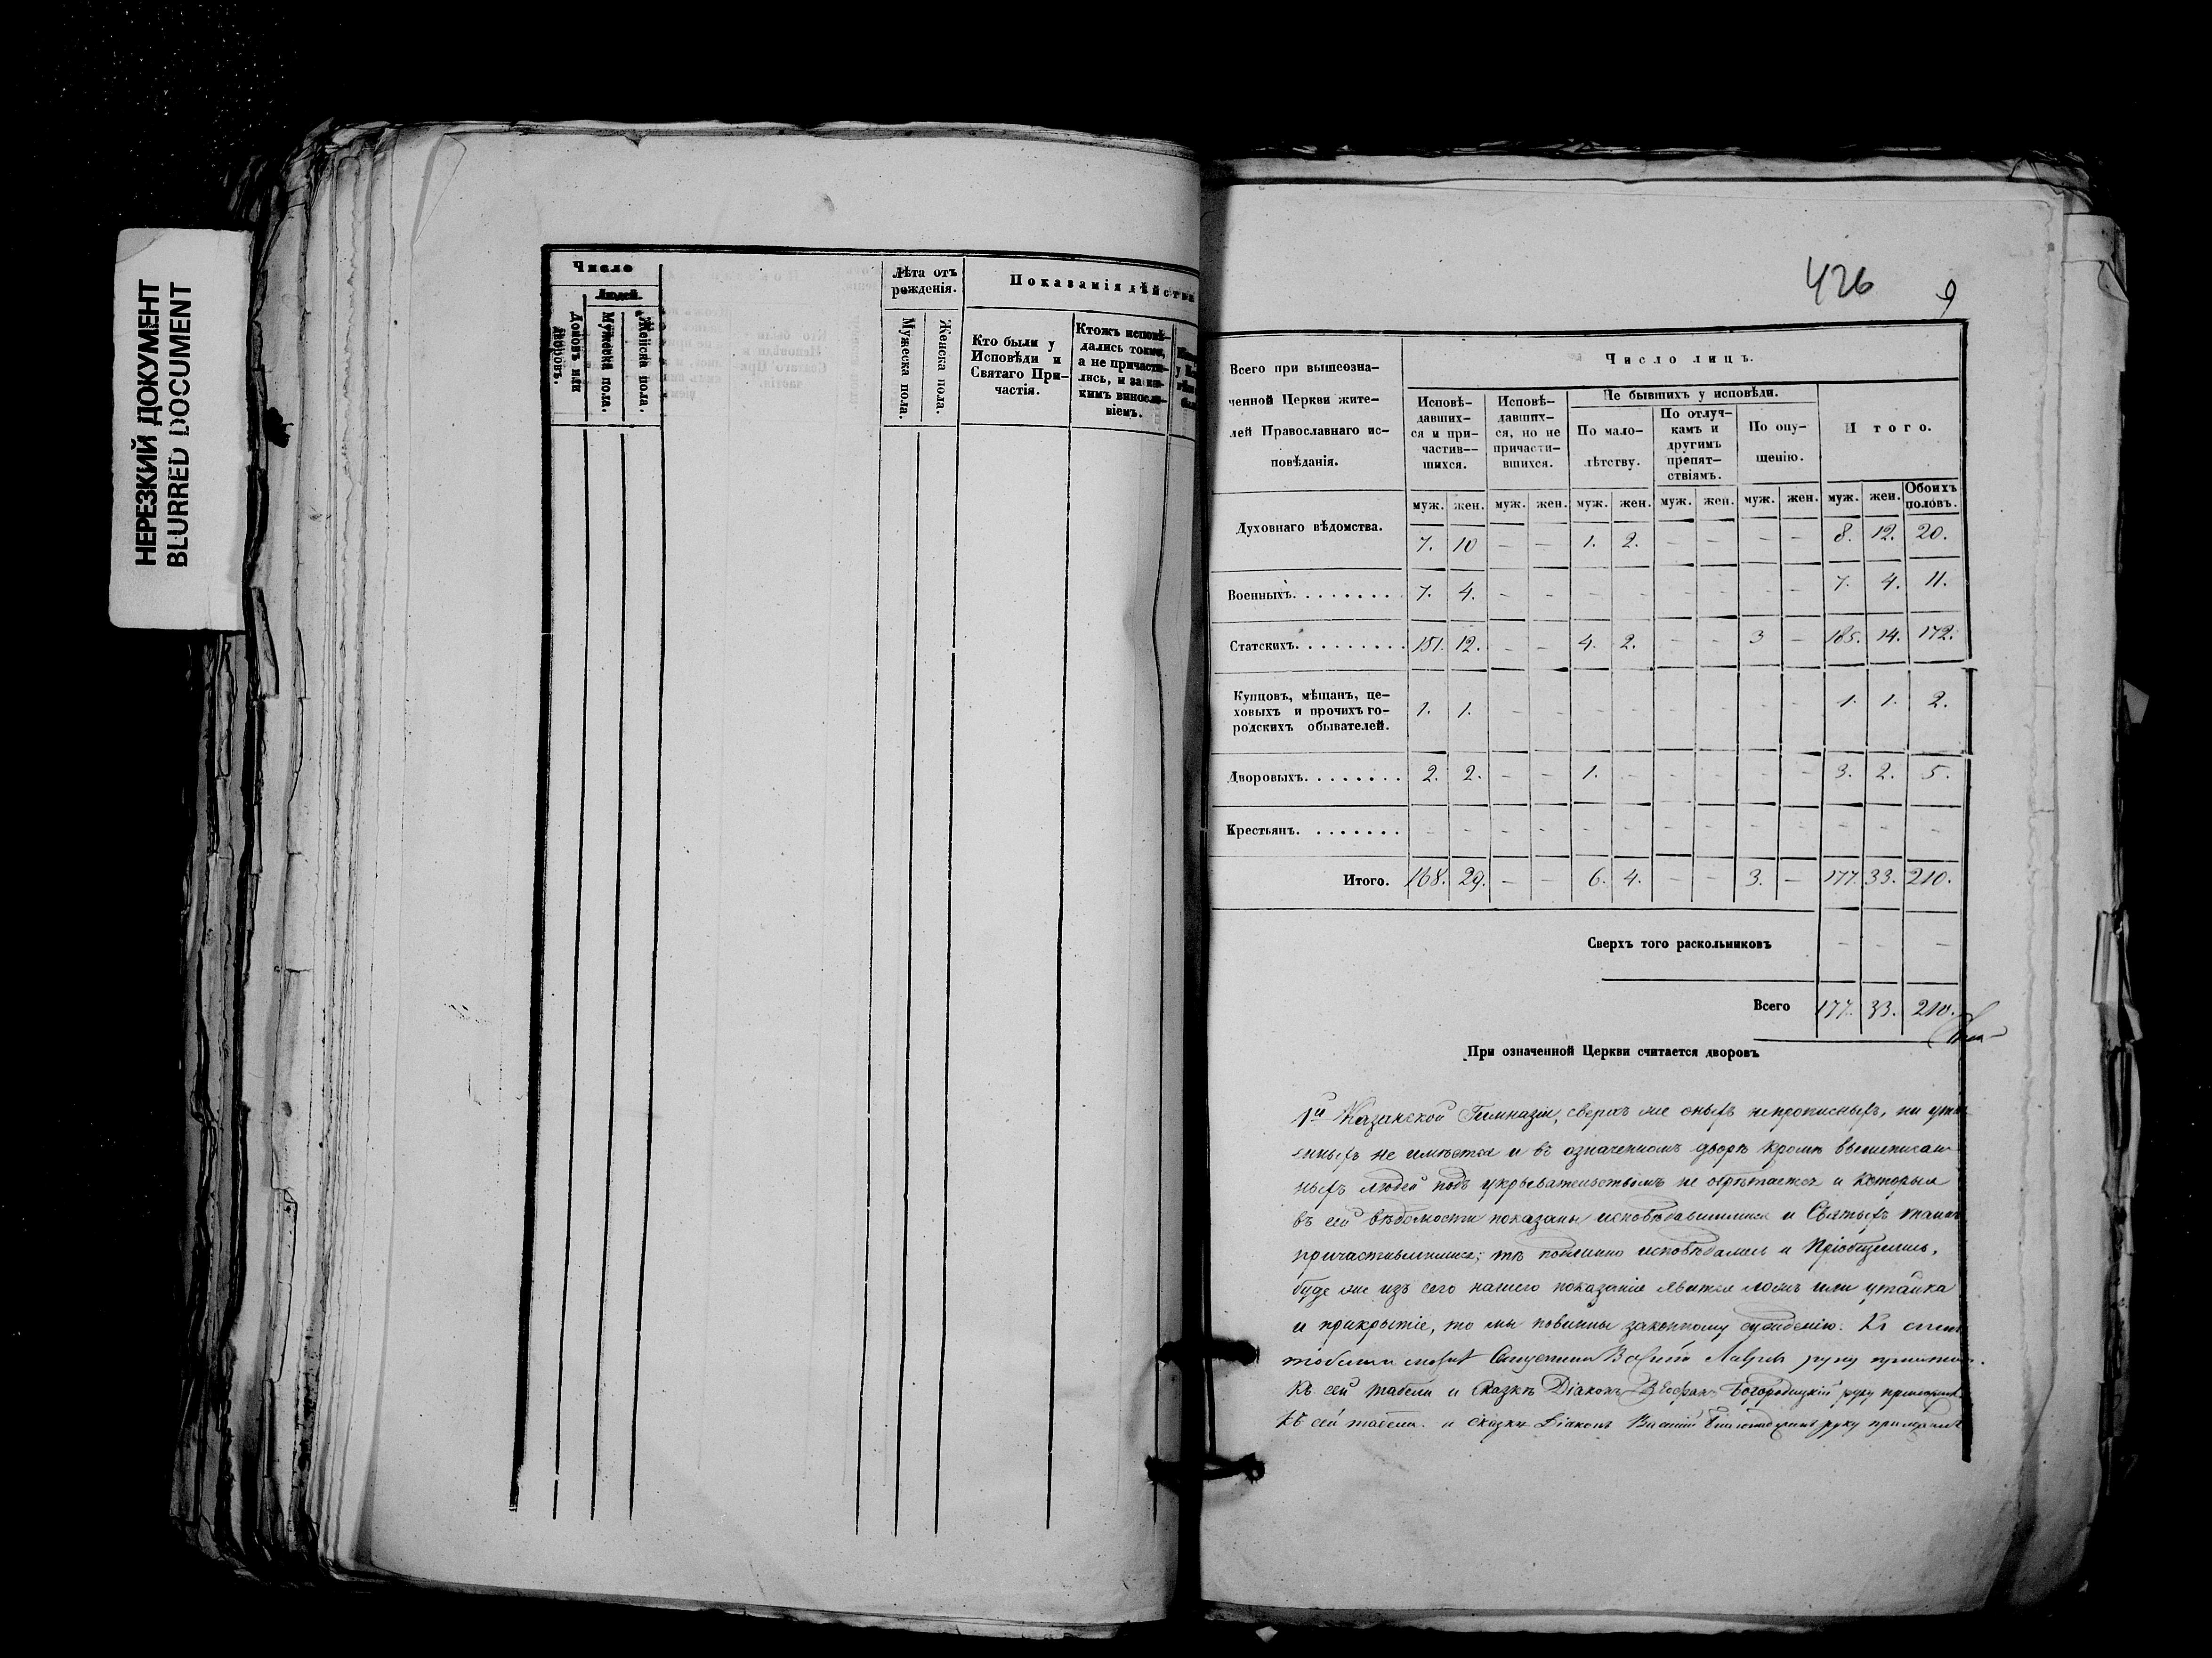 НЕРЕЗКИЙ ДОКУМЕНТ
BLURRED DOCUMENT
Число
Людей.
Домовъ или дворовъ.
Мужеска пола.
Женска пола.
Лѣта отъ
рожденія.
Мужеска пола.
Женска пола.
Показанія дѣйства
Кто были у
Исповѣди и
Святаго При-
частія.
Ктожъ исповѣ-
дались токмо,
а не причасти-
лись, и за ка-
кимъ винословіемъ.
426
9
Всего при вышеозна-
ченной Церкви жите-
лей Православнаго ис-
повѣданія.
Число лицъ.
Исповѣ-
давших-
ся и при-
частив-
шихся.
Исповѣ-
давших-
ся, но не
причасти-
вшихся.
Не бывшихъ у исповѣди.
По мало-
лѣтству.
По отлуч-
камъ и
другимъ
препят-
ствіямъ.
По опу-
щенію.
Итого.
муж. жен. муж. жен. муж. жен. муж. жен. муж. жен. муж. жен. Обоихъ половъ.
Духовнаго вѣдомства. 7. 10 – – 1. 2. – – – – 8. 12. 20.
Военныхъ. 7. 4. – – – – – – – – 7. 4. 11.
Статскихъ. 151. 12. – – 4. 2. – – 3 – 14. 172.
Купцовъ, мѣщанъ, це-
ховыхъ и прочихъ го-
родскихъ обывателей.
1. 1. – – – – – – – – 1. 1. 2.
Дворовыхъ. 2. 2. – – 1. – – – – – 3. 2. 5.
Крестьянъ. – – – – – – – – – – – – –
Итого. 168. 29. – – 6. 4. – – 3. – 177. 33. 210.
Сверхъ того раскольниковъ – – –
Всего 177. 33. 210.
При означенной Церкви считается дворовъ
1й Казанской Гимназіи, сверхъ же оныхъ непрописныхъ, ни
енныхъ не имѣется и въ означенномъ дворѣ кромѣ вышеписан
ныхъ людей подъ укрывательствомъ не обрѣтается и которыя
въ сей вѣдомости показаны исповѣдавшимися и Святыхъ таинъ
причастившимися; тѣ подлинно исповѣдались и Пріобщились,
буде же изъ сего нашего показанія явится ложь или утайка
и прикрытіе, то мы повинны законному сужденію. Къ
руку
Къ сей табели и сказкѣ Діаконъ Богородицкій руку
Къ сей табели и сказкѣ Діаконъ Василій руку приложилъ